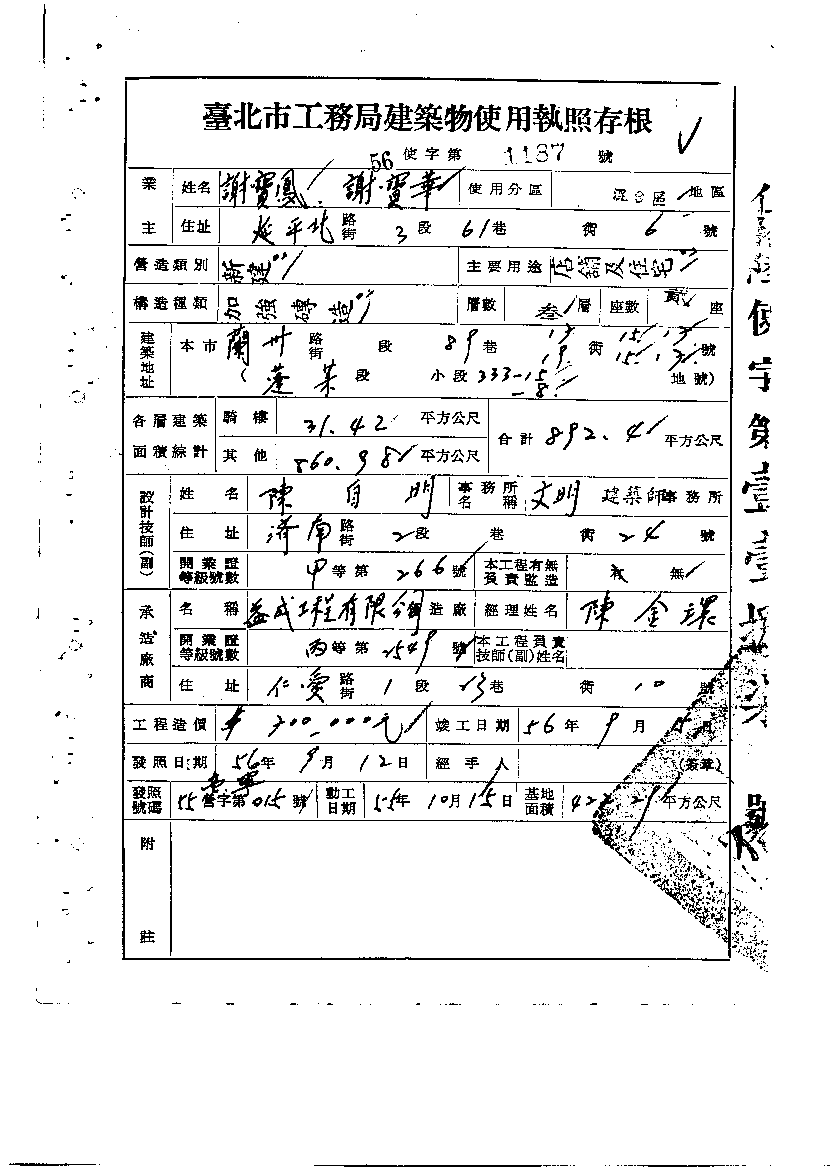 臺北市工務局建築物使用執照存根
56 使字第 1187 號
業主 姓名 謝寶鳳 謝寶華 使用分區 混合區 地區
住址 延平北 路街 3 段 61 巷 街 6 號
營造類別 新建 主要用途 店鋪及住宅
構造種類 加強磚造 層數 叁 層 座數 貳 座
建築地址 本市 蘭州 路街 段 89 巷 街 號
( 蓬萊 段 小段 333-15 -8 地號)
各層建築面積綜計 騎樓 31.42 平方公尺 合計 892.4 平方公尺
其他 860.98 平方公尺
設計技師(副) 姓名 陳自明 事務所名稱 文明 建築師事務所
住址 濟南 路街 2 段 巷 街 24 號
開業證等級號數 甲 等第 266 號 本工程有無負責監造 有 無
承造廠商 名稱 益成工程有限公司 造廠 經理姓名 陳金環
開業證等級號數 丙 等第 2549 號 本工程負責技師(副)姓名
住址 仁愛 路街 1 段 13 巷 街 10 號
工程造價 700,000元 竣工日期 56 年 9 月 5 日
發照日期 56 年 9 月 12 日 經手人 (簽章)
發照號碼 55 營字第 015 號 動工日期 55 年 10 月 15 日 基地面積 422.29 平方公尺
附註
使字第壹壹
號